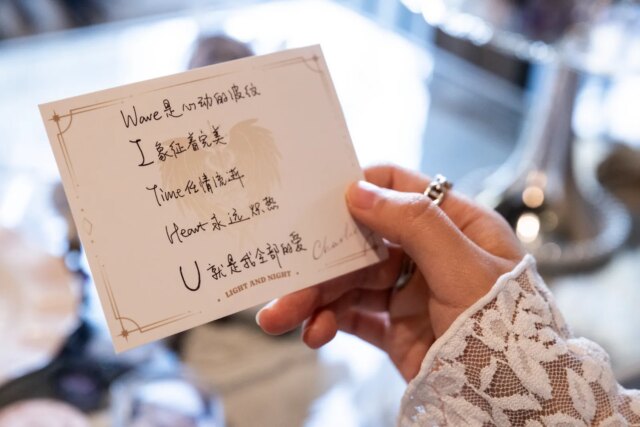 Wave是心动的波纹
I象征着完美
Time任情流连
Heart永远炽热
U就是我全部的爱
Charlie
LIGHT AND NIGHT